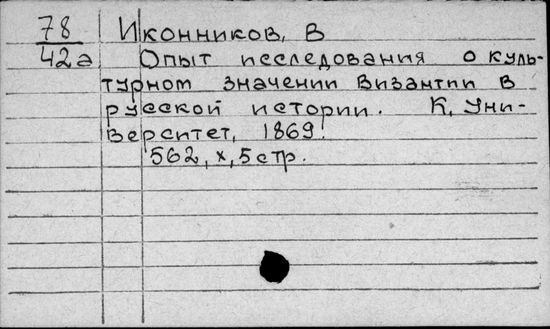 78 Иконников, В
42а Опыт исследования о куль-
турном значении Византии в
русской истории. К, Уни-
верситет, 1869.
562, x, 5 стр.